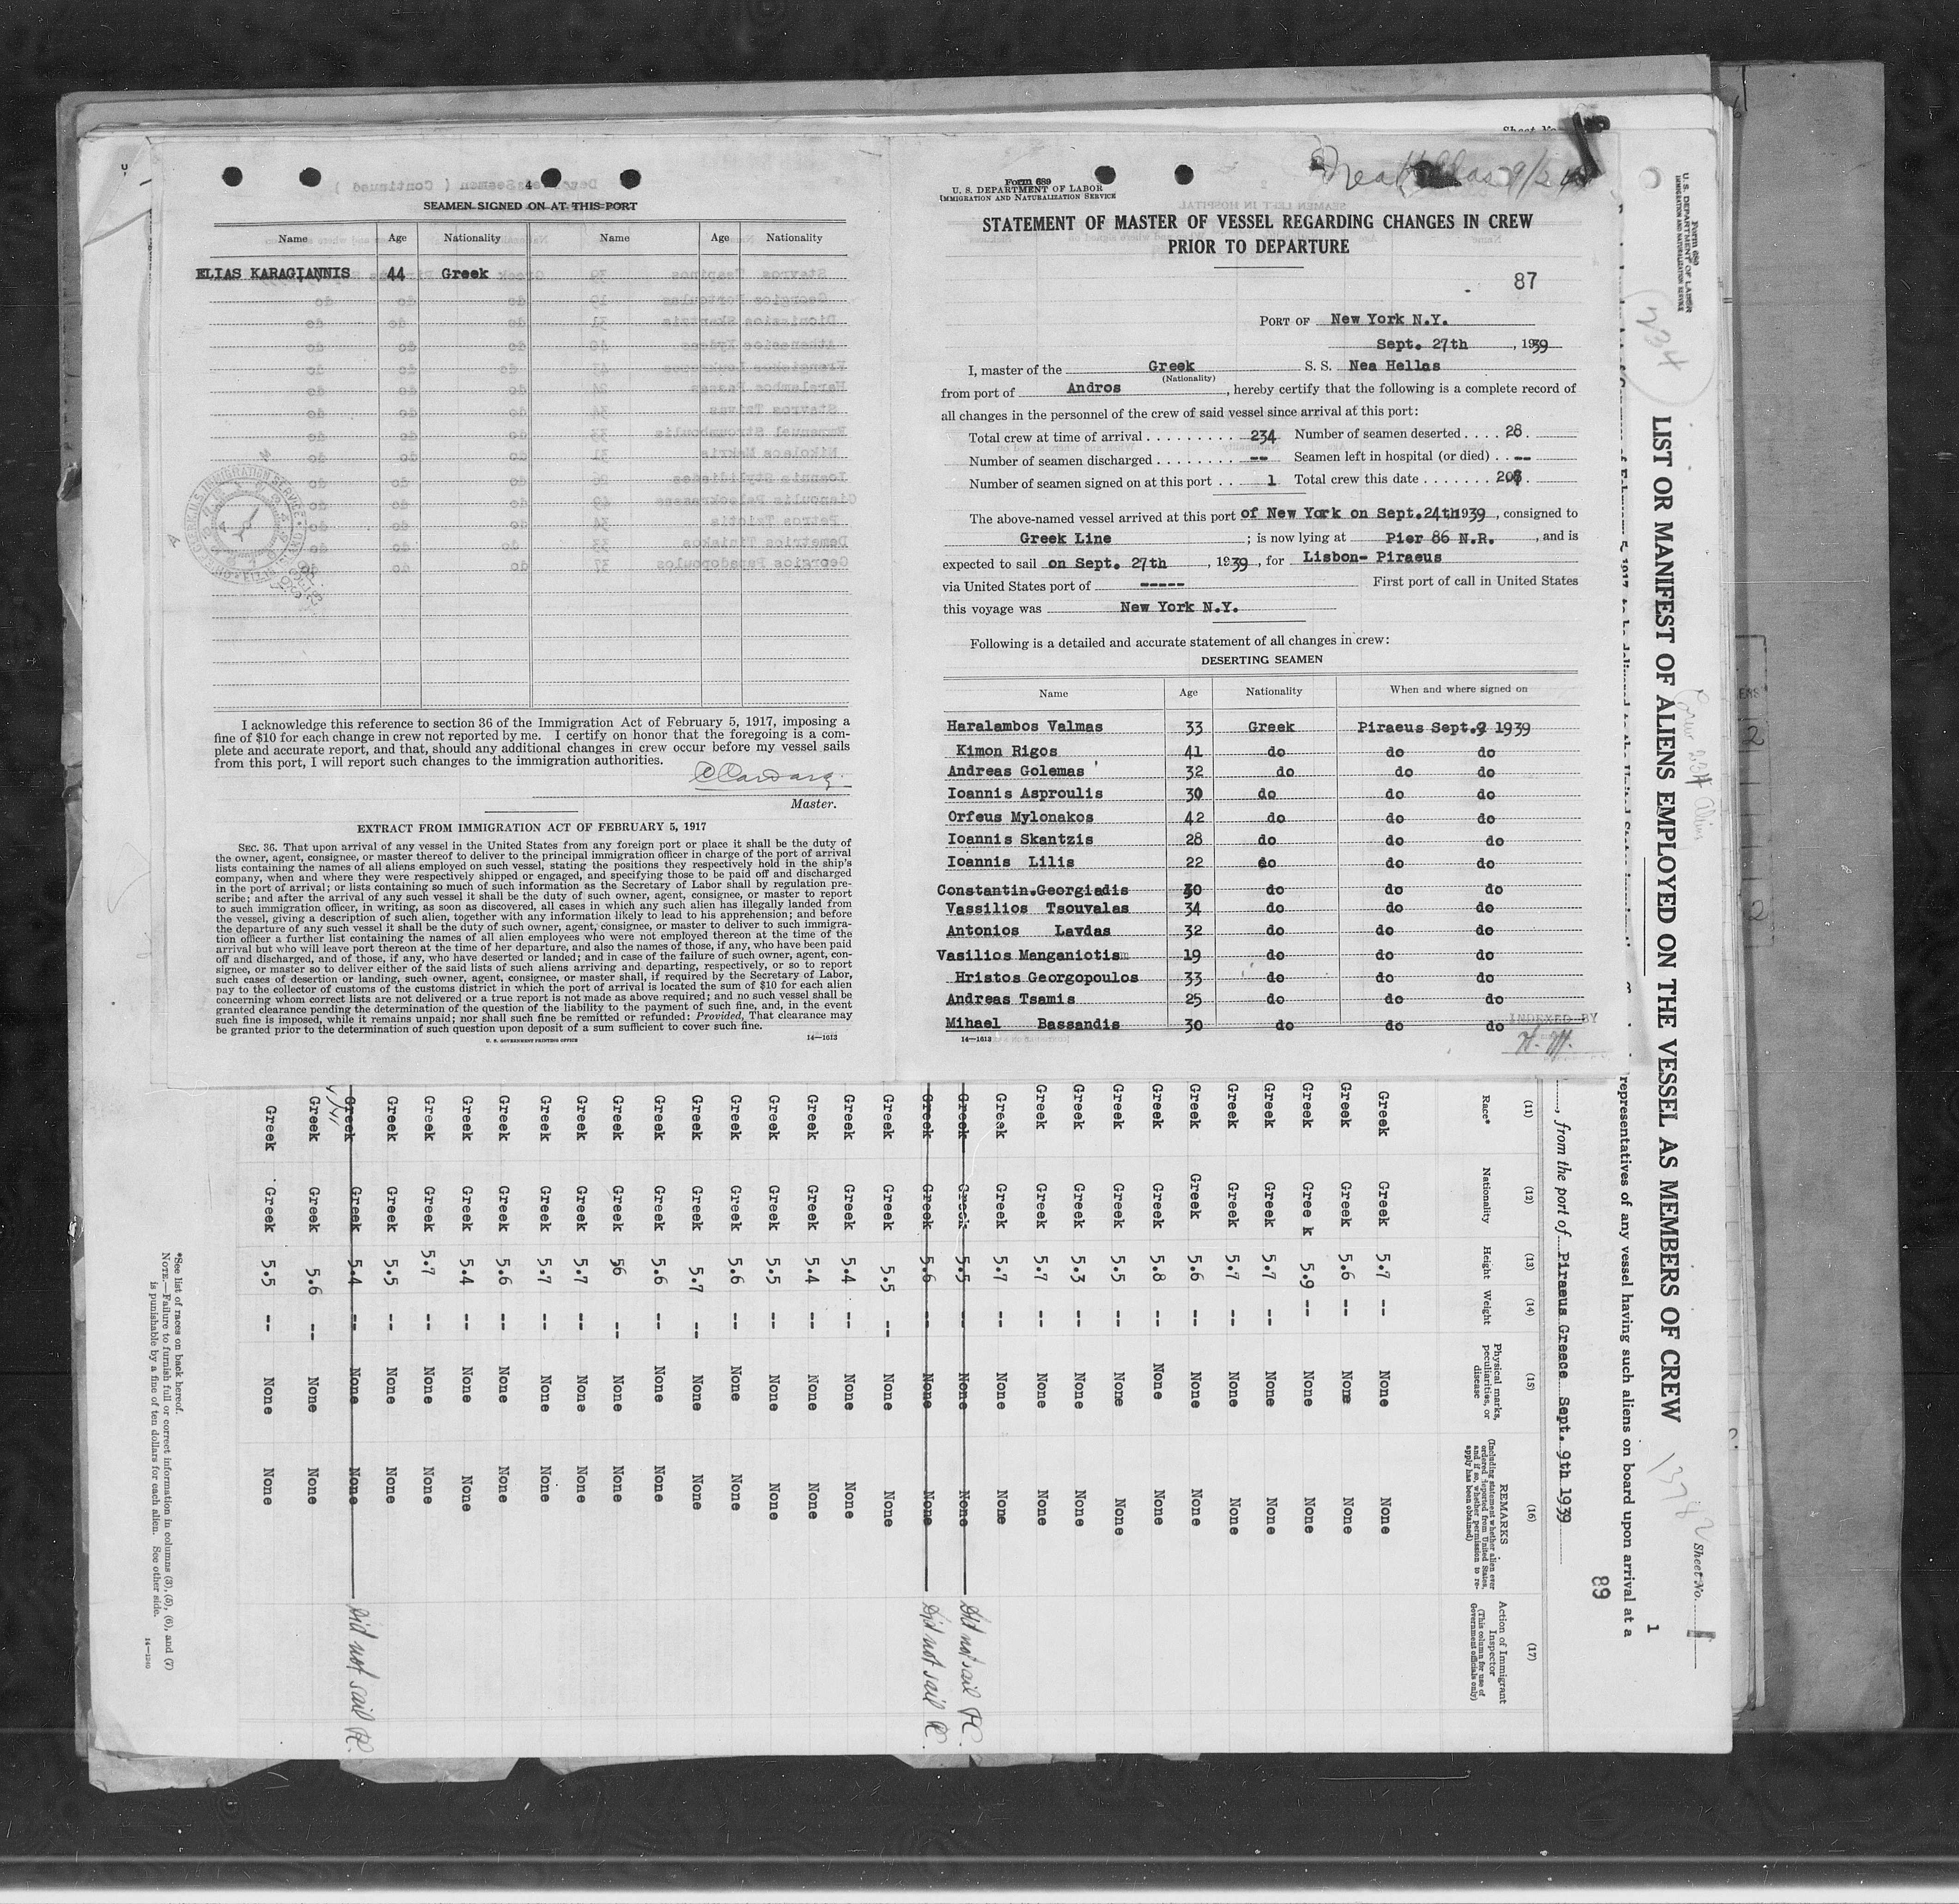 4
SEAMEN SIGNED ON AT THIS PORT
Name Age Nationality Name Age Nationality
ELIAS KARAGIANNIS 44 Greek
I acknowledge this reference to section 36 of the Immigration Act of February 5, 1917, imposing a
fine of $10 for each change in crew not reported by me. I certify on honor that the foregoing is a com-
plete and accurate report, and that, should any additional changes in crew occur before my vessel sails
from this port, I will report such changes to the immigration authorities.
Master.
EXTRACT FROM IMMIGRATION ACT OF FEBRUARY 5, 1917
SEC. 36. That upon arrival of any vessel in the United States from any foreign port or place it shall be the duty of
the owner, agent, consignee, or master thereof to deliver to the principal immigration officer in charge of the port of arrival
lists containing the names of all aliens employed on such vessel, stating the positions they respectively hold in the ship's
company, when and where they were respectively shipped or engaged, and specifying those to be paid off and discharged
in the port of arrival; or lists containing so much of such information as the Secretary of Labor shall by regulation pre-
scribe; and after the arrival of any such vessel it shall be the duty of such owner, agent, consignee, or master to report
to such immigration officer, in writing, as soon as discovered, all cases in which any such alien has illegally landed from
the vessel, giving a description of such alien, together with any information likely to lead to his apprehension; and before
the departure of any such vessel it shall be the duty of such owner, agent, consignee, or master to deliver to such immigra-
tion officer a further list containing the names of all alien employees who were not employed thereon at the time of the
arrival but who will leave port thereon at the time of her departure, and also the names of those, if any, who have been paid
off and discharged, and of those, if any, who have deserted or landed; and in case of the failure of such owner, agent, con-
signee, or master so to deliver either of the said lists of such aliens arriving and departing, respectively, or so to report
such cases of desertion or landing, such owner, agent, consignee, or master shall, if required by the Secretary of Labor,
pay to the collector of customs of the customs district in which the port of arrival is located the sum of $10 for each alien
concerning whom correct lists are not delivered or a true report is not made as above required; and no such vessel shall be
granted clearance pending the determination of the question of the liability to the payment of such fine, and, in the event
such fine is imposed, while it remains unpaid; nor shall such fine be remitted or refunded: Provided, That clearance may
be granted prior to the determination of such question upon deposit of a sum sufficient to cover such fine.
U. S. GOVERNMENT PRINTING OFFICE 14—1613
Form 689
U. S. DEPARTMENT OF LABOR
IMMIGRATION AND NATURALIZATION SERVICE
Nea Hellas
STATEMENT OF MASTER OF VESSEL REGARDING CHANGES IN CREW
PRIOR TO DEPARTURE
87
PORT OF New York N.Y.
Sept. 27th, 1939
I, master of the Greek S. S. Nea Hellas
(Nationality)
from port of Andros, hereby certify that the following is a complete record of
all changes in the personnel of the crew of said vessel since arrival at this port:
Total crew at time of arrival 234 Number of seamen deserted 28
Number of seamen discharged -- Seamen left in hospital (or died) --
Number of seamen signed on at this port 1 Total crew this date
The above-named vessel arrived at this port of New York on Sept. 24th 1939, consigned to
Greek Line; is now lying at Pier 86 N.R., and is
expected to sail on Sept. 27th, 1939, for Lisbon- Piraeus
via United States port of ----- First port of call in United States
this voyage was New York N.Y.
Following is a detailed and accurate statement of all changes in crew:
DESERTING SEAMEN
Name Age Nationality When and where signed on
Haralambos Valmas 33 Greek Piraeus Sept.9 1939
Kimon Rigos 41 do do do
Andreas Golemas 32 do do do
Ioannis Asproulis 30 do do do
Orfeus Mylonakos 42 do do do
Ioannis Skantzis 28 do do do
Ioannis Lilis 22 do do do
Constantin.Georgiadis 30 do do do
Vassilios Tsouvalas 34 do do do
Antonios Lavdas 32 do do do
Vasilios Manganiotis 19 do do do
Hristos Georgopoulos 33 do do do
Andreas Tsamis 25 do do do
Mihael Bassandis 30 do do do
INDEXED BY
H. M.
14—1613
Form 689
U. S. DEPARTMENT OF LABOR
IMMIGRATION AND NATURALIZATION SERVICE
234
LIST OR MANIFEST OF ALIENS EMPLOYED ON THE VESSEL AS MEMBERS OF CREW
Sheet No. 1
1
89
representatives of any vessel having such aliens on board upon arrival at a
, from the port of Piraeus Greece Sept. 9th 1939
(11) (12) (13) (14) (15) (16) (17)
Race* Nationality Height Weight Physical marks, peculiarities, or disease REMARKS (Including statement whether alien ever ordered deported from United States, and if so, whether permission to re-apply has been obtained) Action of Immigrant Inspector (This column for use of Government officials only)
Greek Greek 5.7 -- None None
Greek Greek 5.6 -- None None
Greek Gree k 5.9 -- None None
Greek Greek 5.7 -- None None
Greek Greek 5.7 -- None None
Greek Greek 5.6 -- None None
Greek Greek 5.8 -- None None
Greek Greek 5.5 -- None None
Greek Greek 5.3 -- None None
Greek Greek 5.7 -- None None
Greek Greek 5.7 -- None None
Greek Greek 5.5 -- None None Did not sail
Greek Greek 5.6 -- None None Did not sail
Greek Greek 5.5 -- None None
Greek Greek 5.4 -- None None
Greek Greek 5.4 -- None None
Greek Greek 5.5 -- None None
Greek Greek 5.6 -- None None
Greek Greek 5.7 -- None None
Greek Greek 5.6 -- None None
Greek Greek 56 -- None None
Greek Greek 5.7 -- None None
Greek Greek 5.7 -- None None
Greek Greek 5.6 -- None None
Greek Greek 5.4 -- None None
Greek Greek 5.7 -- None None
Greek Greek 5.5 -- None None
Greek Greek 5.4 -- None None Did not sail
Greek Greek 5.6 -- None None
Greek Greek 5.5 -- None None
*See list of races on back hereof.
NOTE.—Failure to furnish full or correct information in columns (3), (5), (6), and (7)
is punishable by a fine of ten dollars for each alien. See other side.
14—1240